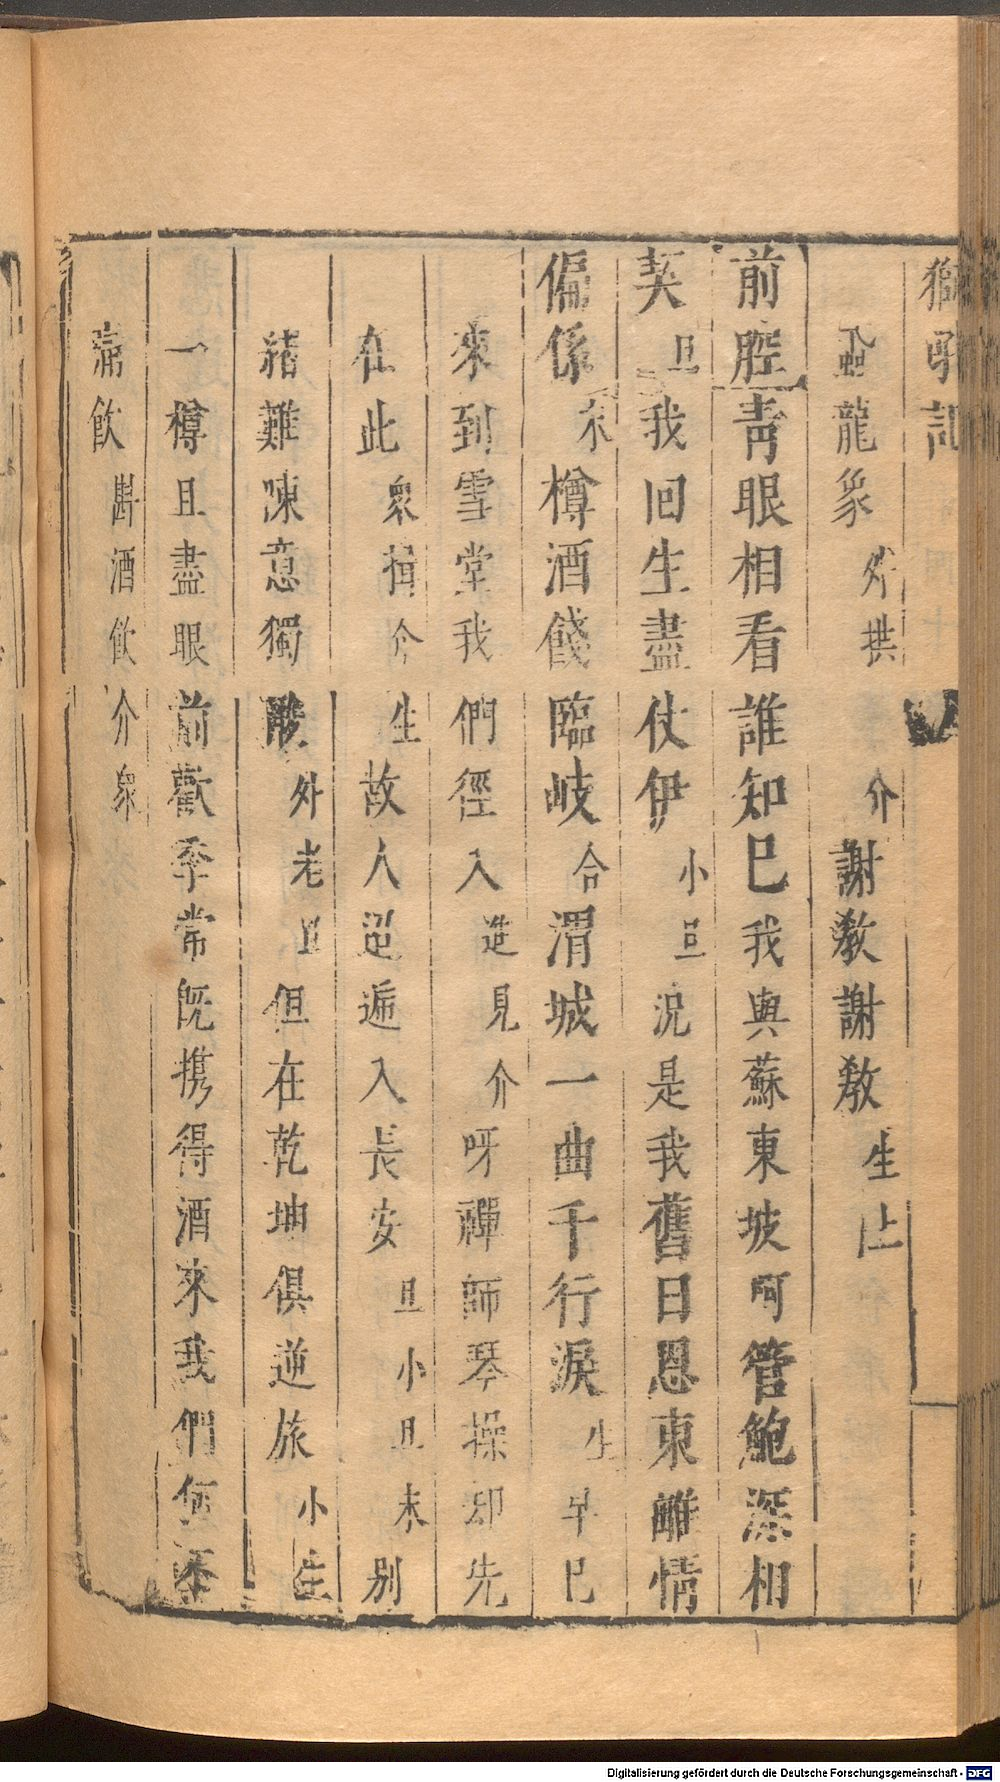 獅吼記
龍象外拱介謝教謝教生上
前腔青眼相看誰知巳我與蘇東坡呵管鮑深相
契旦我回生盡仗伊小旦況是我舊日恩東離情
偏係末樽酒餞臨岐合渭城一曲千行淚生早巳
來到雪堂我們徑入進見介呀禪師琴操却先
在此衆揖介生故人迢遞入長安旦小旦末別
緒難陳意獨酸外老旦但在乾坤俱逆旅小生
一樽且盡眼前歡季常旣携得酒來我們何不
痛飲斟酒飲介衆
Digitalisierung gefördert durch die Deutsche Forschungsgemeinschaft - DFG